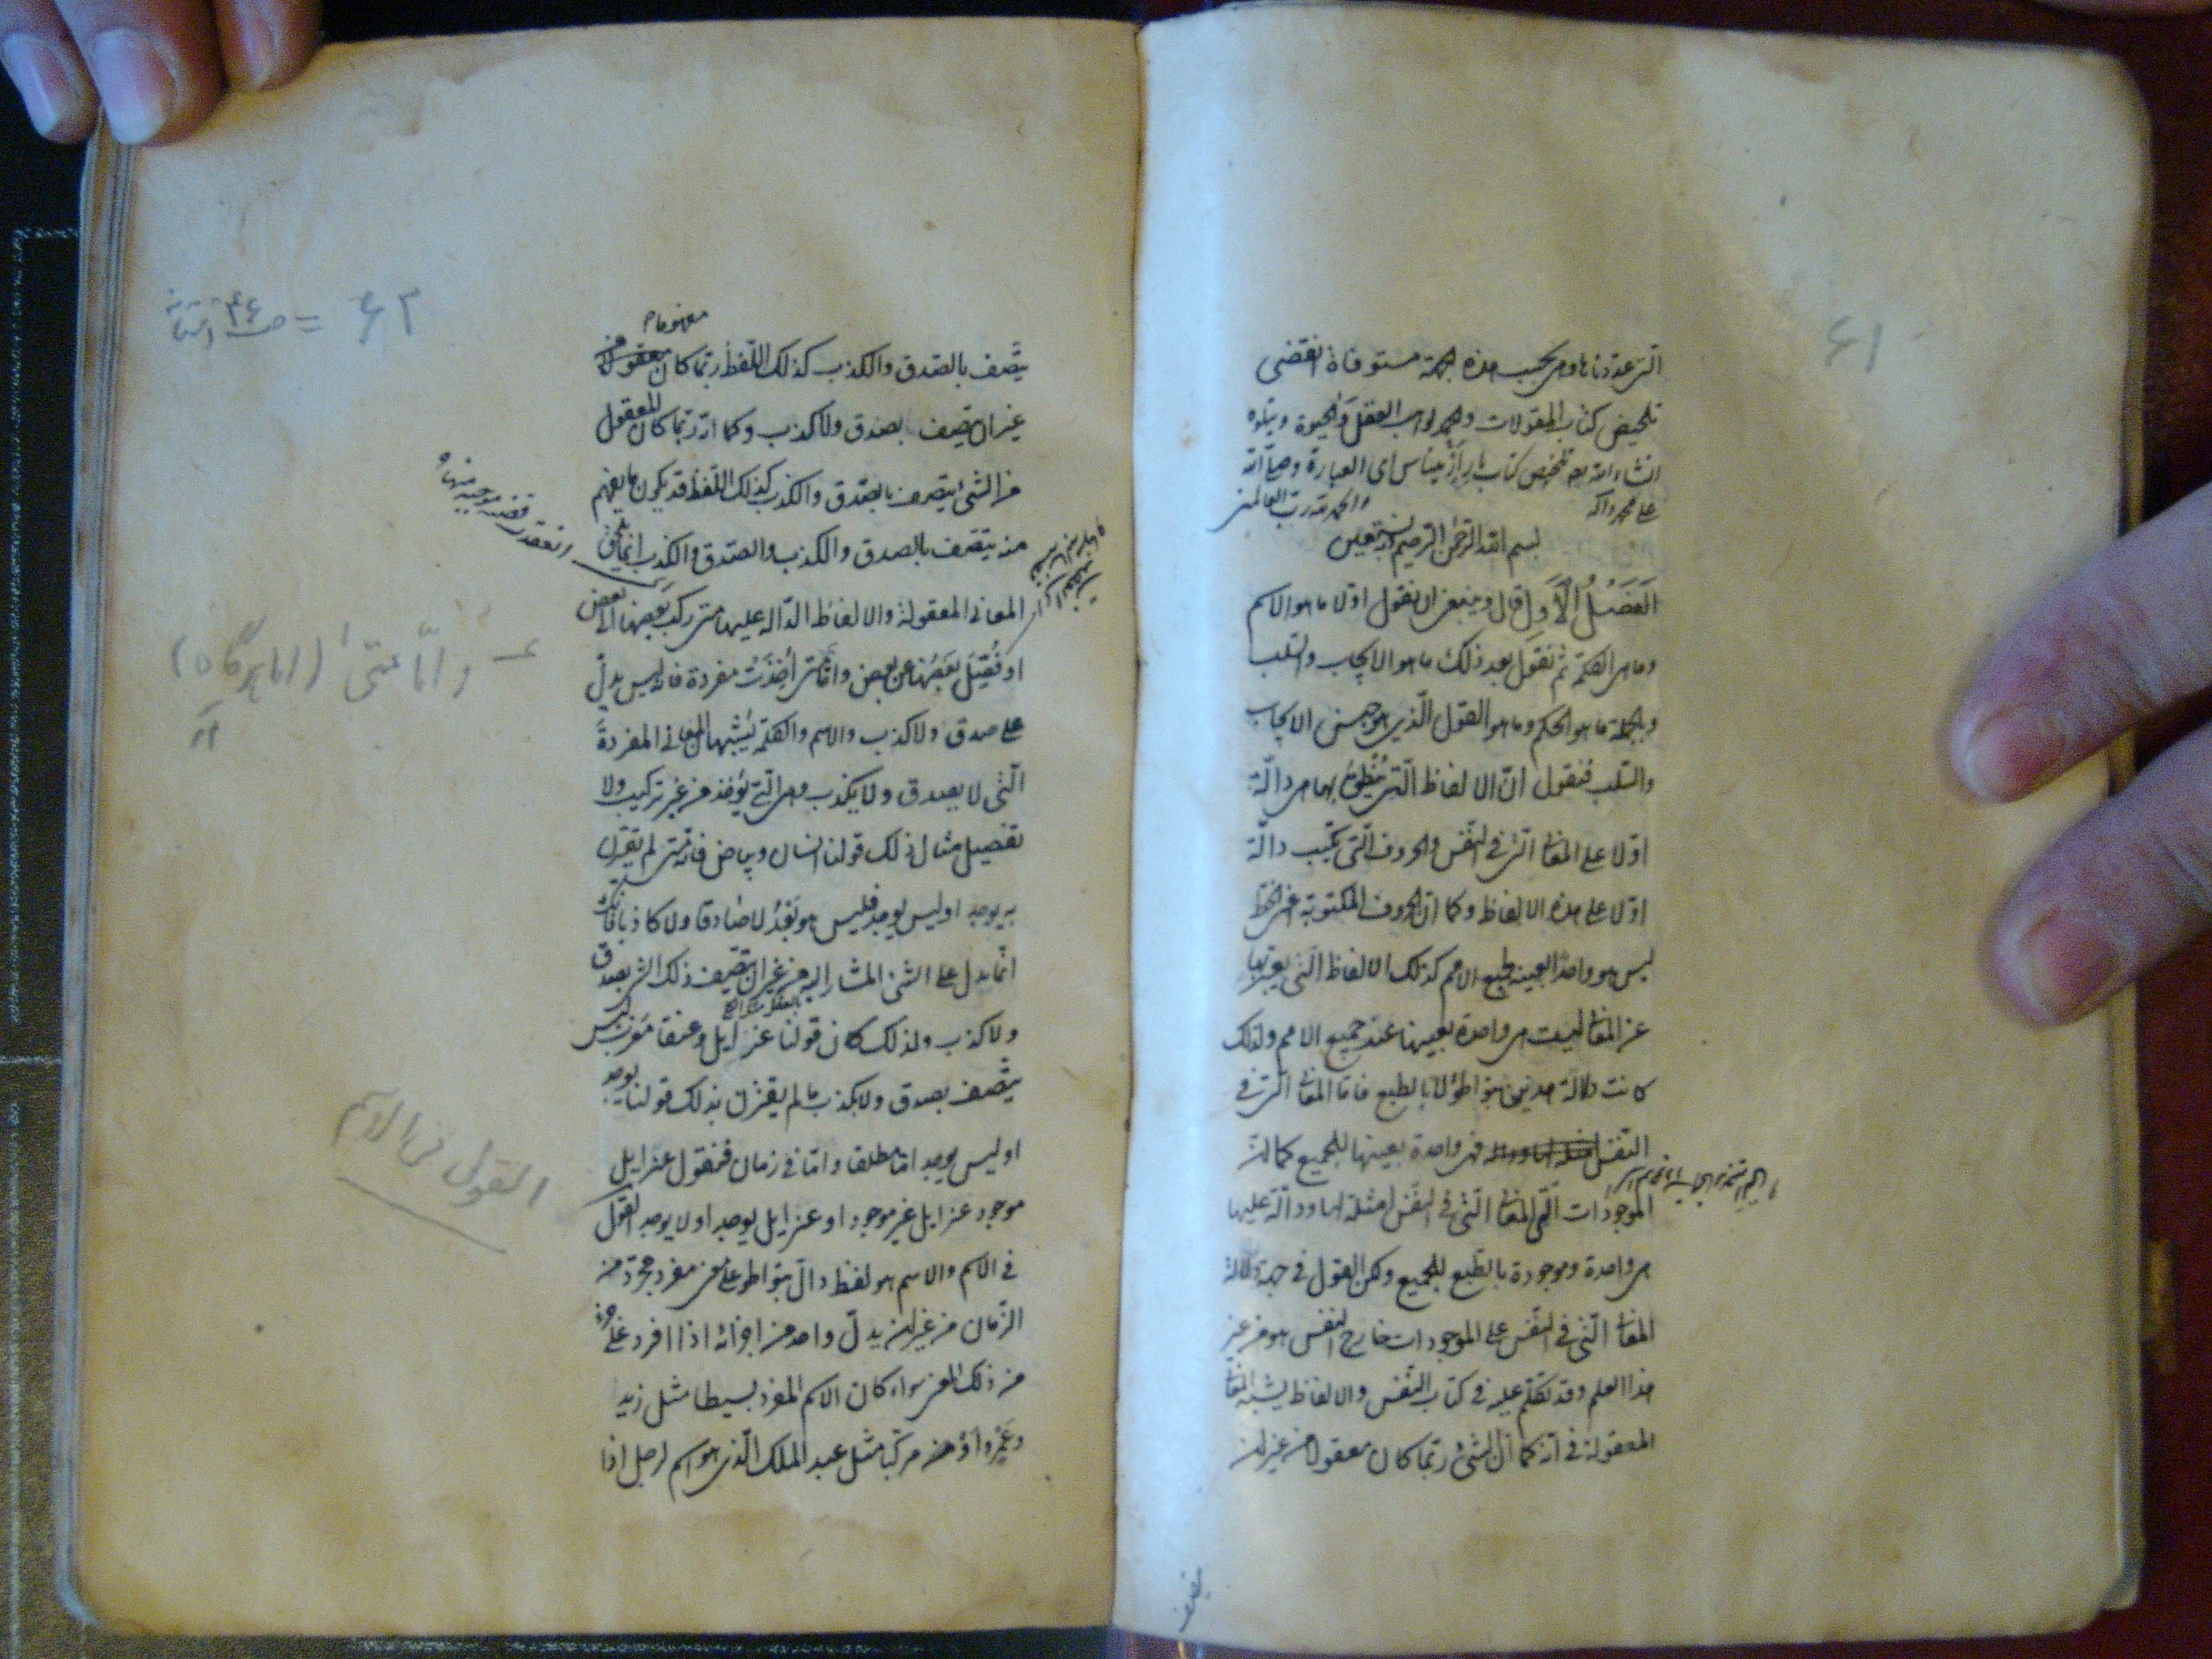 ۶۱
التى عددناها وهى بحسب هذه الجهة مستوفاة انقضى
تلخيص كتاب المقولات والحمد لواهب العقل والحيوة ويتلوه
انشاء الله تعه تلخيص كتاب بارى ارمينياس اى العبارة وصلى الله
على محمد وآله والحمد لله رب العالمين
بسم الله الرحمن الرحيم وبه نستعين
الفصل الاول قال وينبغى ان نقول اولا ما هو الاسم
وما هى الكلمة ثم نقول بعد ذلك ما هو الايجاب والسلب
وبالجملة ما هو الحكم وما هو القول الذى هو جنس الايجاب
والسلب فنقول ان الالفاظ التى ينطق بها هى دالة
اولا على المعانى التى فى النفس والحروف التى تكتب دالة
اولا على هذه الالفاظ وكما ان الحروف المكتوبة اعنى الخط
ليس هو واحدا بعينه لجميع الامم كذلك الالفاظ التى يعبر بها
عن المعانى ليست هى واحدة بعينها عند جميع الامم ولذلك
كانت دلالة هذين بتواطؤ لا بالطبع فاما المعانى التى فى
النفس فهى واحدة بعينها للجميع كما ان
الموجودات التى المعانى التى فى النفس امثلة لها ودالة عليها
هى واحدة وموجودة بالطبع للجميع ولكن القول فى جهة دلالة
المعانى التى فى النفس على الموجودات خارج النفس هو من غير
هذا العلم وقد تكلم عليه فى كتاب النفس والالفاظ يشبه المعانى
المعقولة فى انه كما ان الشئ ربما كان معقولا من غير ان
يتصف
۶۲ =
مفهوما
يتصف بالصدق والكذب كذلك اللفظ ربما كان معقولا من
غير ان يتصف بصدق ولا كذب وكما انه ربما كان المعقول
من الشئ يتصف بالصدق والكذب كذلك اللفظ قد يكون ما يفهم
منه يتصف بالصدق والكذب والصدق والكذب انما يلحق
المعانى المعقولة والالفاظ الدالة عليها متى ركب بعضها الى بعض
او فصل بعضها عن بعض واما متى اخذت مفردة فانه ليس يدل
على صدق ولا كذب والاسم والكلمة يشبهان المعانى المفردة
التى لا يصدق ولا يكذب وهى التى يؤخذ من غير تركيب ولا
تفصيل مثال ذلك قولنا انسان وبياض فانه متى لم يقترن
به يوجد او ليس يوجد فليس هو بعد لا صادقا ولا كاذبا
انما يدل على الشئ المشار اليه من غير ان يتصف ذلك الشئ بصدق
ولا كذب ولذلك كان قولنا عنز ايل وعنقا مغرب ليس
يتصف بصدق ولا بكذب ما لم يقترن بذلك قولنا يوجد
او ليس يوجد اما مطلقا واما فى زمان فنقول عنز ايل
موجود عنز ايل غير موجود او عنز ايل يوجد او لا يوجد القول
فى الاسم والاسم هو لفظ دال بتواطؤ على معنى مفرد مجرد من
الزمان من غير ان يدل واحد من اجزائه اذا افرد على جزء
من ذلك المعنى سواء كان الاسم المفرد بسيطا مثل زيد
وعمرو او مركبا مثل عبد الملك الذى هو اسم لرجل اذا
واما متى (اما هرگاه)
القول فى الاسم